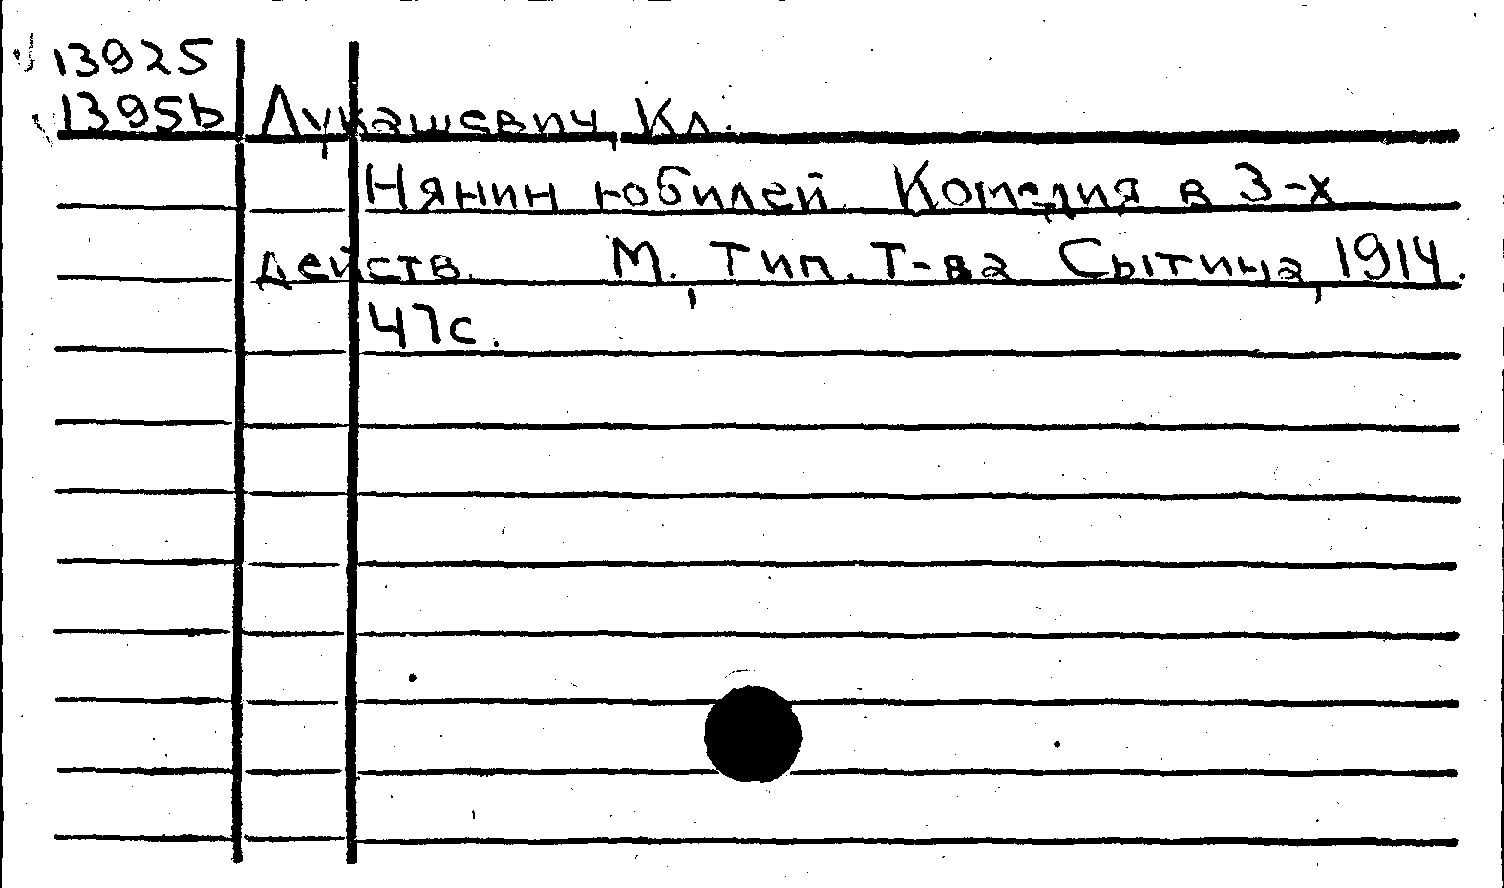 13925
1395ь Лукашевич, Кл.
Нянин юбилей. Комедия в 3-х
действ. М., Тип. Т-ва Сытина, 1914.
47с.